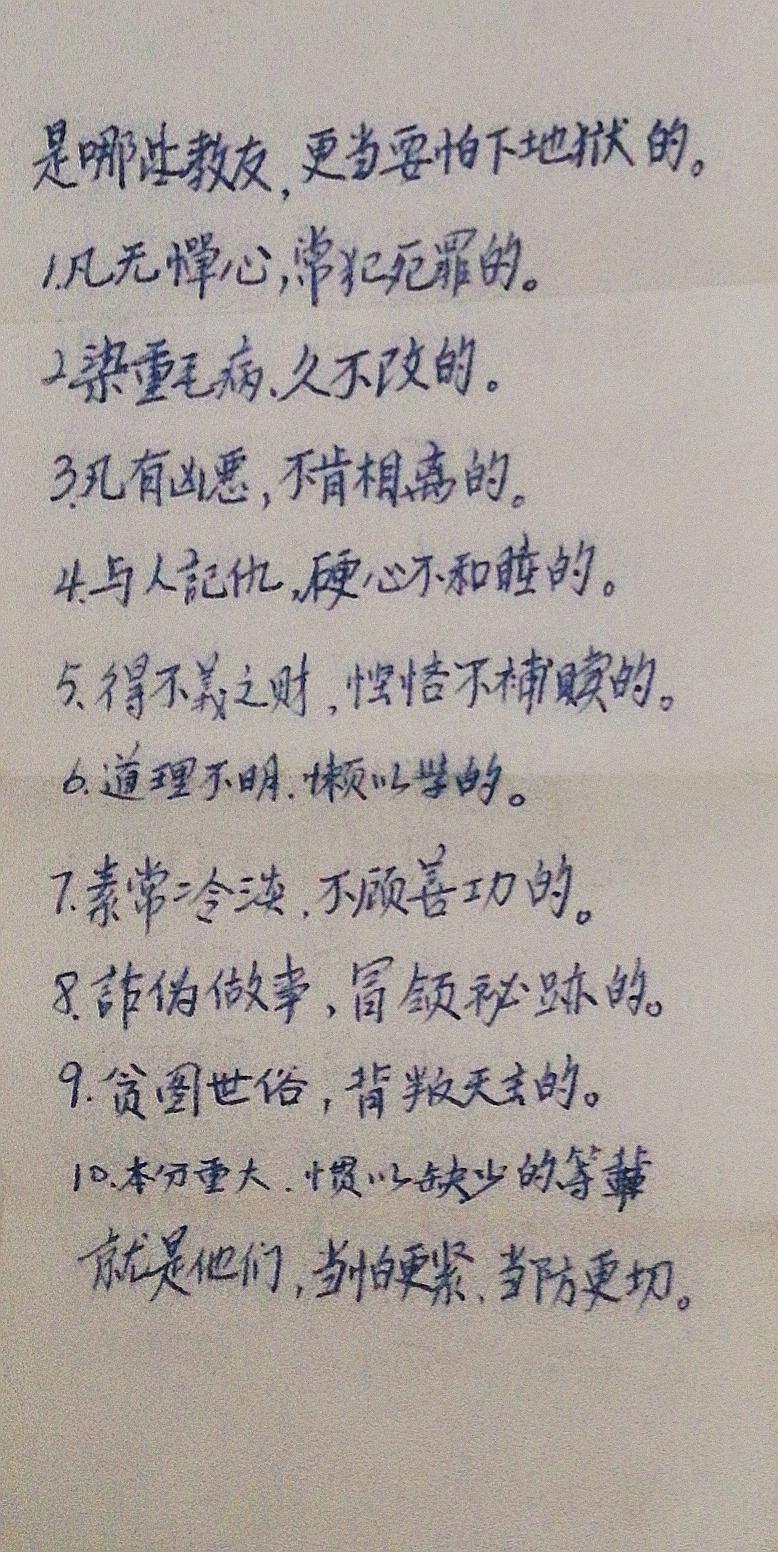 是哪些教友，更当要怕下地狱的。
1.凡无惮心，常犯死罪的。
2.染重毛病、久不改的。
3.凡有凶恶，不肯相离的。
4.与人記仇，硬心不和睦的。
5、得不義之财，悭悋不補贖的。
6.道理不明、懒以学的。
7.素常冷淡、不顾善功的。
8.詐伪做事，冒领秘跡的。
9.贫图世俗，背叛天主的。
10.本分重大、惯以缺少的等輩
就是他们，当怕更紧、当防更切。